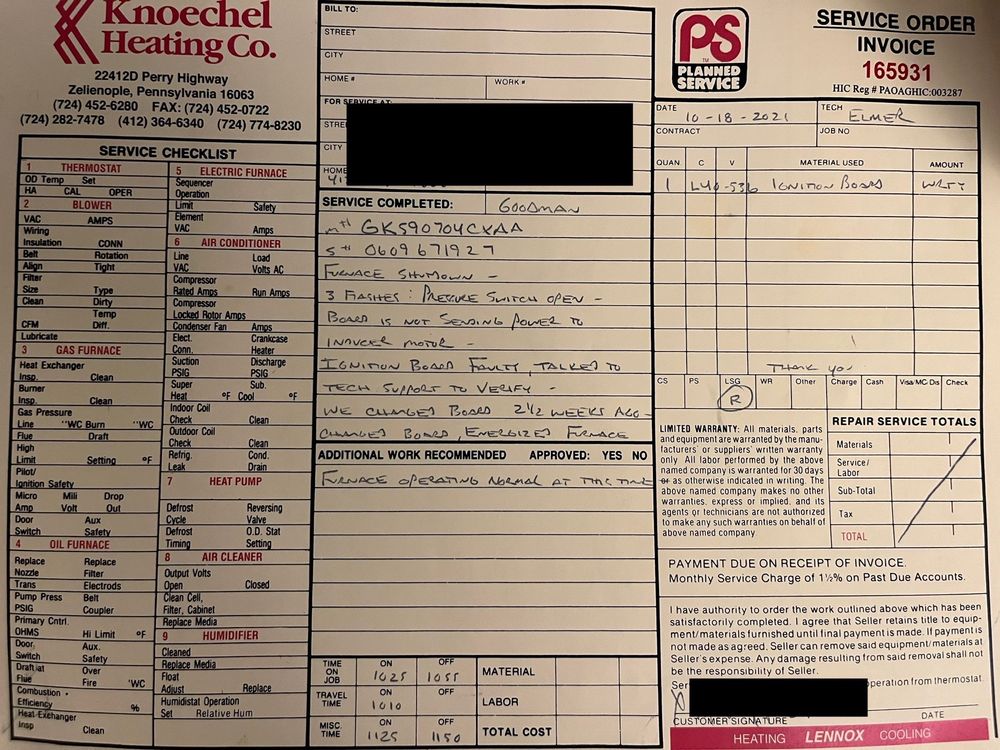 Knoechel
Heating Co.
22412D Perry Highway
Zelienople, Pennsylvania 16063
(724) 452-6280 FAX: (724) 452-0722
(724) 282-7478 (412) 364-6340 (724) 774-8230
SERVICE CHECKLIST
1 THERMOSTAT
OD Temp Set
HA CAL OPER
2 BLOWER
VAC AMPS
Wiring
Insulation CONN
Belt Rotation
Align Tight
Filter
Size Type
Clean Dirty
Temp
CFM Diff.
Lubricate
3 GAS FURNACE
Heat Exchanger
Insp. Clean
Burner
Insp. Clean
Gas Pressure
Line "WC Burn "WC
Flue Draft
High
Limit Setting °F
Pilot/
Ignition Safety
Micro Mili Drop
Amp Volt Out
Door Aux
Switch Safety
4 OIL FURNACE
Replace Replace
Nozzle Filter
Trans Electrods
Pump Press Belt
PSIG Coupler
Primary Cntrl.
OHMS Hi Limit °F
Door, Aux.
Switch Safety
Draft iat Over
Flue Fire "WC
Combustion
Efficiency %
Heat Exchanger
Insp Clean
5 ELECTRIC FURNACE
Sequencer
Operation
Limit Safety
Element
VAC Amps
6 AIR CONDITIONER
Line Load
VAC Volts AC
Compressor
Rated Amps Run Amps
Compressor
Locked Rotor Amps
Condenser Fan Amps
Elect. Crankcase
Conn. Heater
Suction Discharge
PSIG PSIG
Super Sub.
Heat °F Cool °F
Indoor Coil
Check Clean
Outdoor Coil
Check Clean
Refrig. Cond.
Leak Drain
7 HEAT PUMP
Defrost Reversing
Cycle Valve
Defrost O.D. Stat
Timing Setting
8 AIR CLEANER
Output Volts
Open Closed
Clean Cell,
Filter, Cabinet
Replace Media
9 HUMIDIFIER
Cleaned
Replace Media
Float
Adjust Replace
Humidistat Operation
Set Relative Hum
BILL TO:
STREET
CITY
HOME # WORK #
FOR SERVICE AT:
STREE
CITY
HOME
SERVICE COMPLETED: GOODMAN
m# GKS90704CXAA
S# 0609671927
FURNACE SHUTDOWN -
3 FLASHES : PRESSURE SWITCH OPEN -
BOARD IS NOT SENDING POWER TO
INDUCER MOTOR -
IGNITION BOARD FAULTY, TALKED TO
TECH SUPPORT TO VERIFY -
WE CHANGED BOARD 2 1/2 WEEKS AGO -
CHANGED BOARD, ENERGIZED FURNACE
ADDITIONAL WORK RECOMMENDED APPROVED: YES NO
FURNACE OPERATING NORMAL AT THIS TIME
TIME ON JOB ON 1025 OFF 1055 MATERIAL
TRAVEL TIME ON 1010 OFF LABOR
MISC. TIME ON 1125 OFF 1150 TOTAL COST
PS
TM
PLANNED
SERVICE
SERVICE ORDER
INVOICE
165931
HIC Reg # PAOAGHIC:003287
DATE 10-18-2021 TECH ELMER
CONTRACT JOB NO
QUAN. C V MATERIAL USED AMOUNT
1 L40-536 IGNITION BOARD WRTY
THANK YOU
CS PS LSG WR Other Charge Cash Visa/MC Dis Check
R
LIMITED WARRANTY: All materials, parts
and equipment are warranted by the manu-
facturers' or suppliers' written warranty
only. All labor performed by the above
named company is warranted for 30 days
or as otherwise indicated in writing. The
above named company makes no other
warranties, express or implied, and its
agents or technicians are not authorized
to make any such warranties on behalf of
above named company
REPAIR SERVICE TOTALS
Materials
Service/
Labor
Sub-Total
Tax
TOTAL
PAYMENT DUE ON RECEIPT OF INVOICE.
Monthly Service Charge of 1½% on Past Due Accounts.
I have authority to order the work outlined above which has been
satisfactorily completed. I agree that Seller retains title to equip-
ment/materials furnished until final payment is made. If payment is
not made as agreed. Seller can remove said equipment/materials at
Seller's expense. Any damage resulting from said removal shall not
be the responsibility of Seller.
Ser peration from thermostat.
X
CUSTOMER SIGNATURE DATE
HEATING LENNOX COOLING